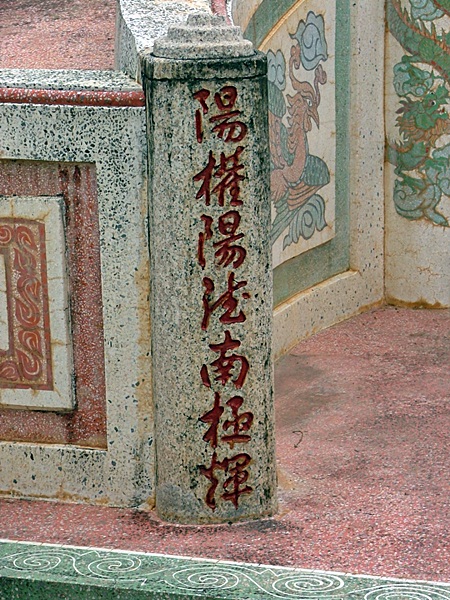 陽權陽德南極輝